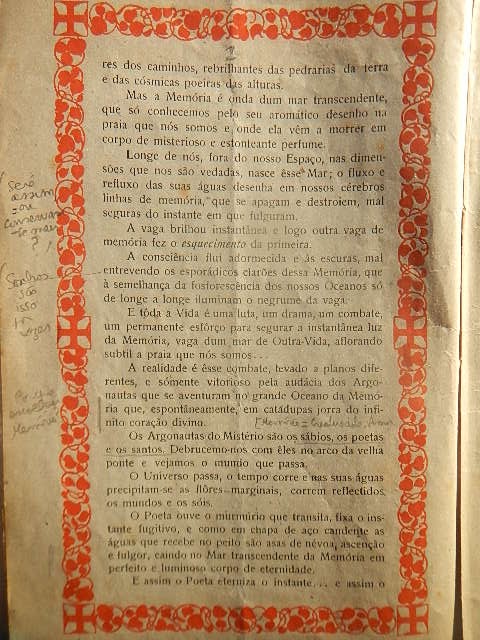 res dos caminhos, rebrilhantes das pedrarias da terra
e das cósmicas poeiras das alturas.
Mas a Memória é onda dum mar transcendente,
que só conhecemos pelo seu aromático desenho na
praia que nós somos e onde ela vêm a morrer em
corpo de misterioso e estonteante perfume.
Longe de nós, fora do nosso Espaço, nas dimen-
sões que nos são vedadas, nasce êsse Mar; o fluxo e
refluxo das suas águas desenha em nossos cérebros
linhas de memória, que se apagam e destroiem, mal
seguras do instante em que fulguram.
A vaga brilhou instantânea e logo outra vaga de
memória fez o esquecimento da primeira.
A consciência flui adormecida e às escuras, mal
entrevendo os esporádicos clarões dessa Memória, que
à semelhança da fosforescência dos nossos Oceanos só
de longe a longe iluminam o negrume da vaga.
E tôda a Vida é uma luta, um drama, um combate,
um permanente esfôrço para segurar a instantânea luz
da Memória, vaga dum mar de Outra-Vida, aflorando
subtil a praia que nós somos...
A realidade é êsse combate, levado a planos dife-
rentes, e sómente vitorioso pela audácia dos Argo-
nautas que se aventuram no grande Oceano da Memó-
ria que, espontâneamente, em catadupas jorra do infi-
nito coração divino.
Os Argonautas do Mistério são os sábios, os poetas
e os santos. Debrucemo-nos com êles no arco da velha
ponte e vejamos o mundo que passa.
O Universo passa, o tempo corre e nas suas águas
precipitam-se as flôres marginais, correm reflectidos
os mundos e os sóis.
O Poeta ouve o murmúrio que transita, fixa o ins-
tante fugitivo, e como em chapa de aço candente as
águas que recebe no peito são asas de névoa, ascenção
e fulgor, caindo no Mar transcendente da Memória em
perfeito e luminoso corpo de eternidade.
E assim o Poeta eterniza o instante... e assim o
Será
assim
ou
?
Sonhos
são
isso